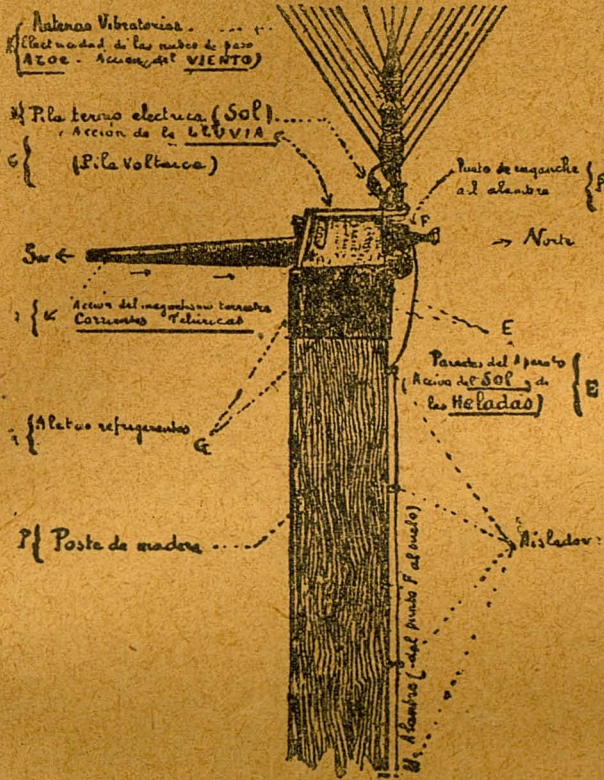 Antenas Vibratorias.
Electricidad de las nubes de paso
AZOE - Accion del VIENTO)
Pila termo electrica (Sol)
Accion de la LLUVIA
G { (Pila Voltaica)
Punto de enganche
al alambre
F
F
Sur ←
→ Norte
Accion del magnetismo terrestre
Corrientes Teluricas
E
Paredes del Aparato
(Accion del SOL y de
las Heladas)
E
Aletas refrigerantes
G
P{ Poste de madera
Aislador
Alambre (del punto F al suelo)